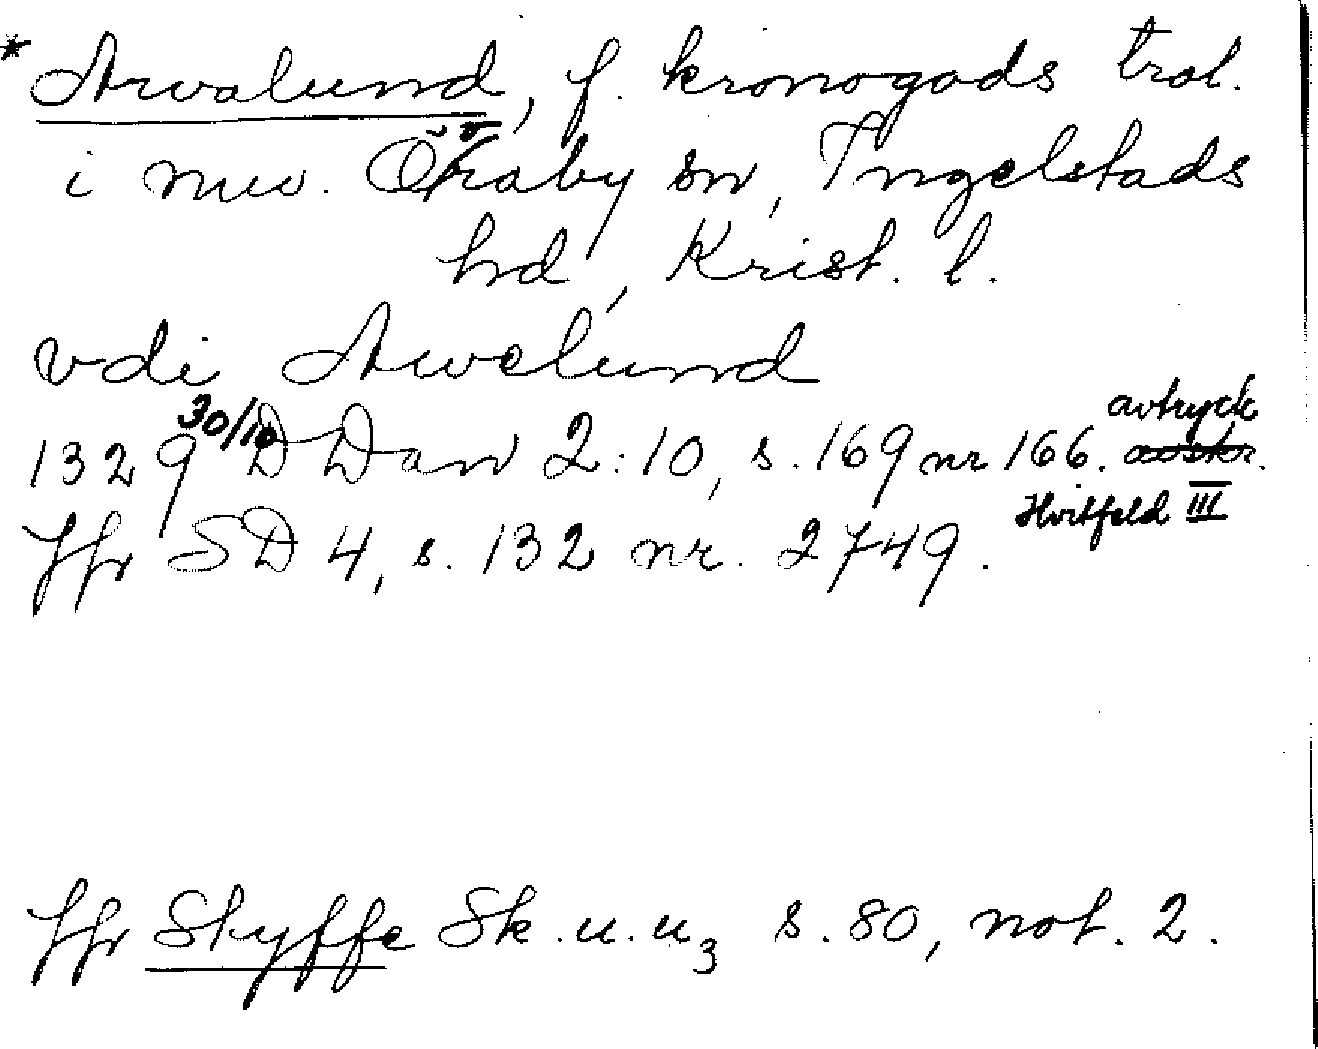 * Arvalund, f. kronogods trol.
i nuv. Övraby sn, Ingelstads
hd, Krist. l.
vdi Awelund
1329 30/10 DDan 2:10, s. 169 nr 166. avtryck avskr.
Hvitfeld III
Jfr SD 4, s. 132 nr. 2749.
Jfr Styffe Sk.u.u3 s. 80, not. 2.